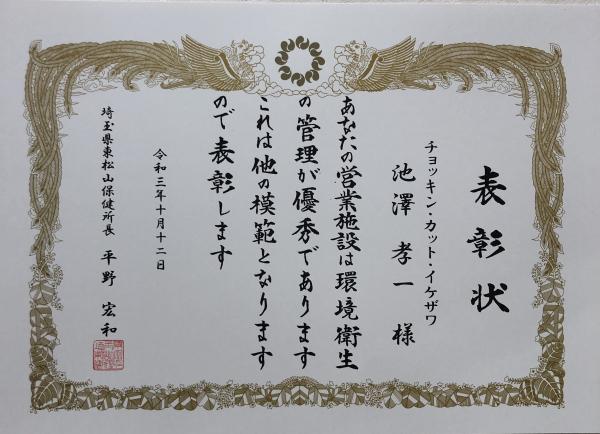 表彰状
チョッキン・カット・イケザワ
池澤孝一様
あなたの営業施設は環境衛生
の管理が優秀であります
これは他の模範となります
ので表彰します
令和三年十月十二日
埼玉県東松山保健所長 平野宏和